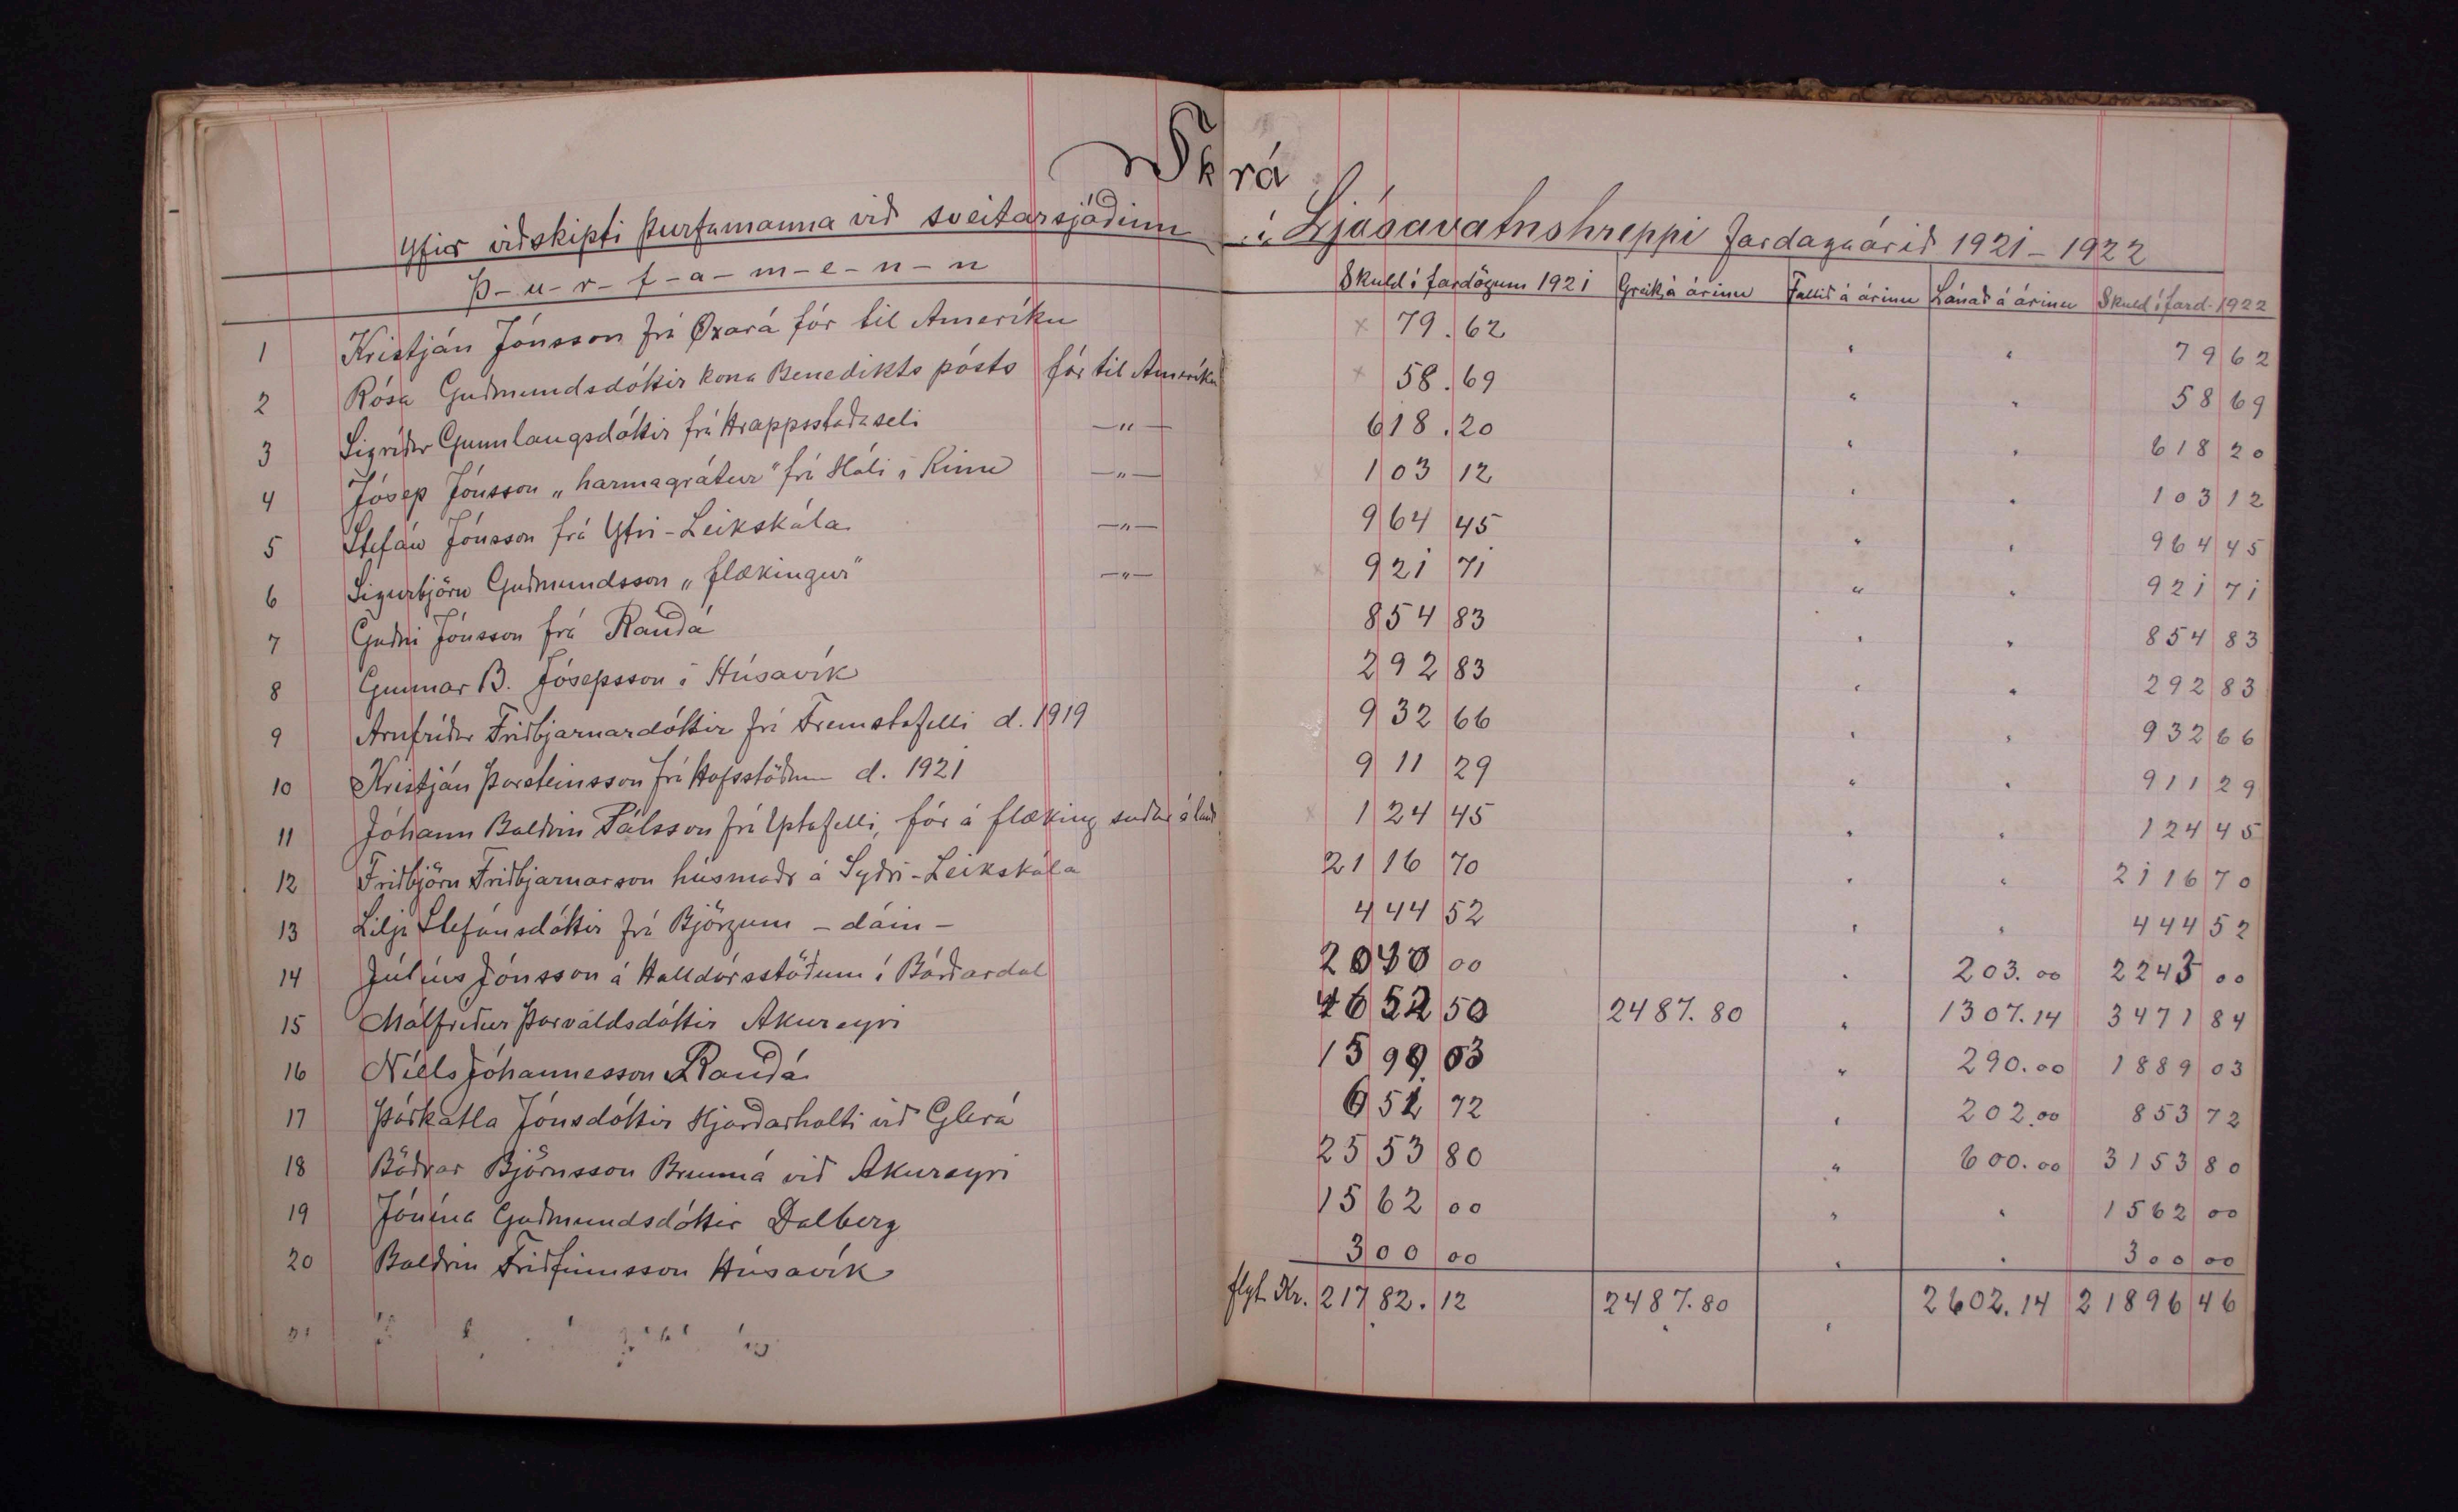 Skrá
Yfir viðskipti þurfamanna við sveitarsjóðinn í Ljósavatnshreppi fardagaárið 1921-1922
Þ-u-r-f-a-m-e-n-n Skuld í fardögum 1921 Greitt á árinu Fallið á árinu Lánað á árinu Skuld í fard. 1922
1 Kristján Jónsson frá Öxará fór til Ameríku × 79.62 " " 79 62
2 Rósa Guðmundsdóttir kona Benedikts pósts fór til Ameríku × 58.69 " " 58 69
3 Sigríður Gunnlaugsdóttir frá Hrappsstaðaseli —"— 618.20 " " 618 20
4 Jósep Jónsson „harmagrátur" frá Hóli í Kinn —"— × 103 12 " " 103 12
5 Stefán Jónsson frá Ytri-Leikskála —"— 964 45 " " 964 45
6 Sigurbjörn Guðmundsson „flækingur" —"— × 921 71 " " 921 71
7 Guðni Jónsson frá Rauðá 854 83 " " 854 83
8 Gunnar B. Jósepsson í Húsavík 292 83 " " 292 83
9 Arnfríður Friðbjarnardóttir frá Fremstafelli d. 1919 932 66 " " 932 66
10 Kristján Þorsteinsson frá Hofsstöðum d. 1921 911 29 " " 911 29
11 Jóhann Baldvin Pálsson frá Yptafelli, fór á flæking suður á land × 124 45 " " 124 45
12 Friðbjörn Friðbjarnarson húsmaðr á Syðri-Leikskála 2116 70 " " 2116 70
13 Lilja Stefánsdóttir frá Björgum - dáin - 444 52 " " 444 52
14 Júlíus Jónsson á Halldórsstöðum í Bárðardal 2040 00 " 203.00 2243 00
15 Málfríður Þorvaldsdóttir Akureyri 4652 50 2487.80 " 1307.14 3471 84
16 Níels Jóhannesson Rauðá 1599 03 " 290.00 1889 03
17 Þórkatla Jónsdóttir Hjarðarholti við Glerá 651 72 " 202.00 853 72
18 Böðvar Björnsson Brunná við Akureyri 2553 80 " 600.00 3153 80
19 Jónína Guðmundsdóttir Dalberg 1562 00 " " 1562 00
20 Baldvin Friðfinnsson Húsavík 300 00 " " 300 00
flyt. Kr. 21782.12 2487.80 " 2602.14 21896 46
21